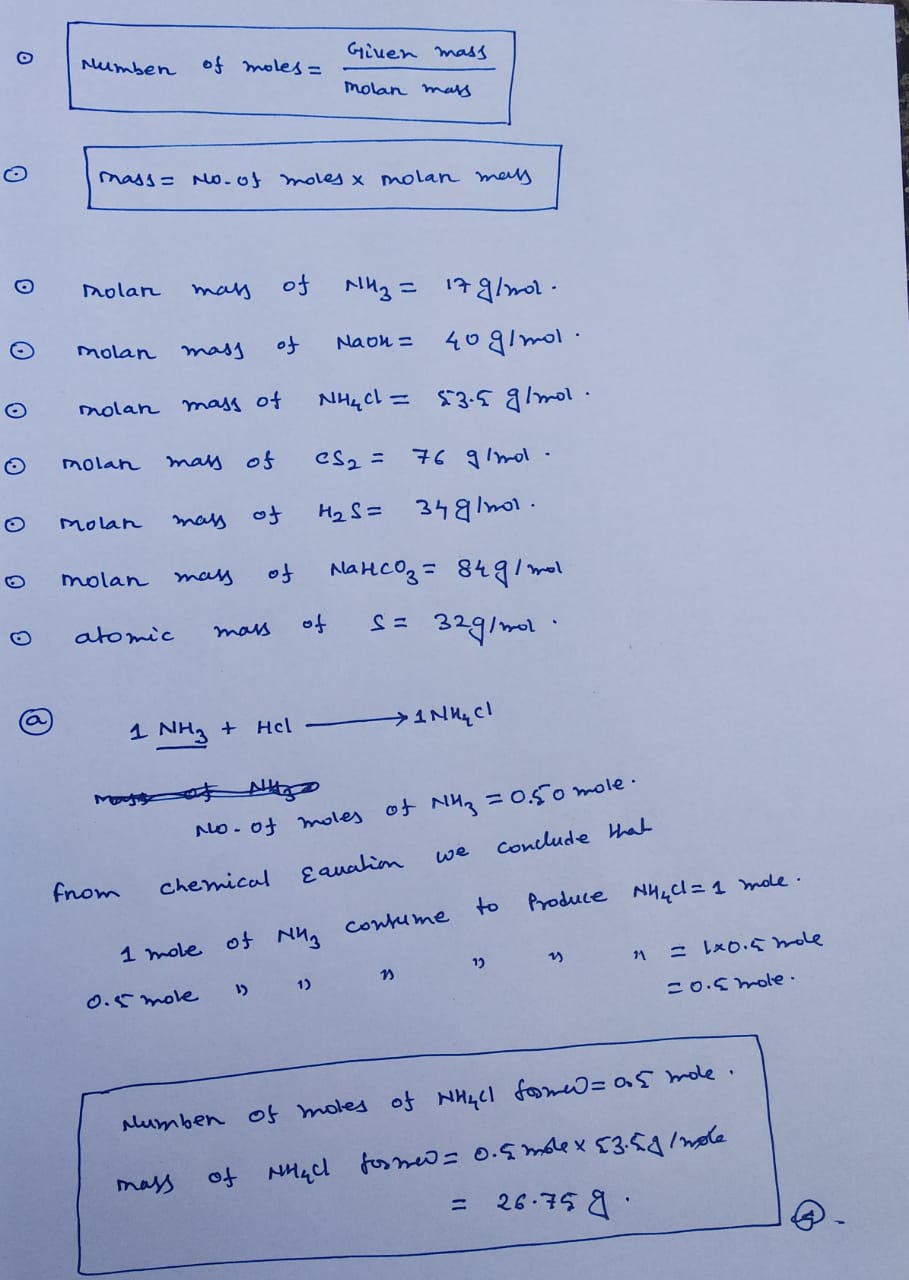 Number of moles = Given mass / molar mass
mass = No. of moles x molar mass
molar mass of NH3 = 17 g/mol.
molar mass of NaOH = 40 g/mol.
molar mass of NH4Cl = 53.5 g/mol.
molar mass of CS2 = 76 g/mol.
molar mass of H2S = 34 g/mol.
molar mass of NaHCO3 = 84 g/mol
atomic mass of S = 32g/mol.
(a) 1 NH3 + HCl ⟶ 1 NH4Cl
No. of moles of NH3 = 0.50 mole.
from chemical Equation we conclude that
1 mole of NH3 consume to Produce NH4Cl = 1 mole.
0.5 mole " " " " " " = 1x0.5 mole
= 0.5 mole.
Number of moles of NH4Cl formed = 0.5 mole.
mass of NH4Cl formed = 0.5 mole x 53.5g/mole
= 26.75 g.